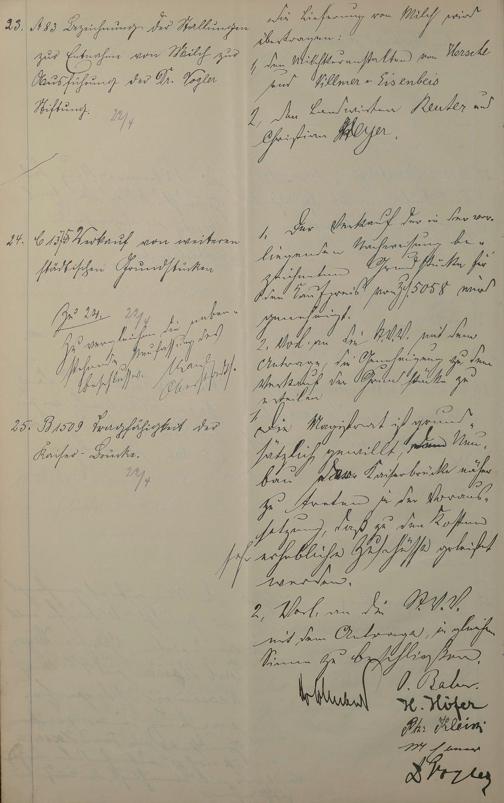 23. A 83 Bezeichnung der Stallungen
zur Entnahme von Milch zur
Ausführung der Dr. Vogler
Stiftung.
22/4
Die Lieferung von Milch wird
übertragen:
1, den Milchkuranstalten von
und Villmer - Eisenbeis
2, den Landwirten Reuter und
Christian Meyer.
24. Verkauf von weiteren
städtischen Grundstücken
Zu 24. 22/4
Zu vergleichen die neben-
stehende
Beschlusses.
1. Der Verkauf der in der vor-
liegenden Nachweisung be-
zeichneten Grundstücke für
den Kaufpreis von 5058 wird
genehmigt.
2. Vorl. an die St.V.V. mit dem
Antrage, die Genehmigung zu dem
Verkauf der Grundstücke zu
erteilen
25. B 1509 Tragfähigkeit der
Kaiser-Brücke.
22/4
1. Der Magistrat ist grund-
sätzlich gewillt, Neu-
bau der Kaiserbrücke näher
zu treten in der Voraus-
setzung, daß zu den Kosten
sehr erhebliche Zuschüsse geleistet
werden.
2, Vorl. an die St.V.V.
mit dem Antrage, in gleichem
Sinne zu beschließen.
O. Baler.
H. Höfer
Ph. Klein
D Vogler